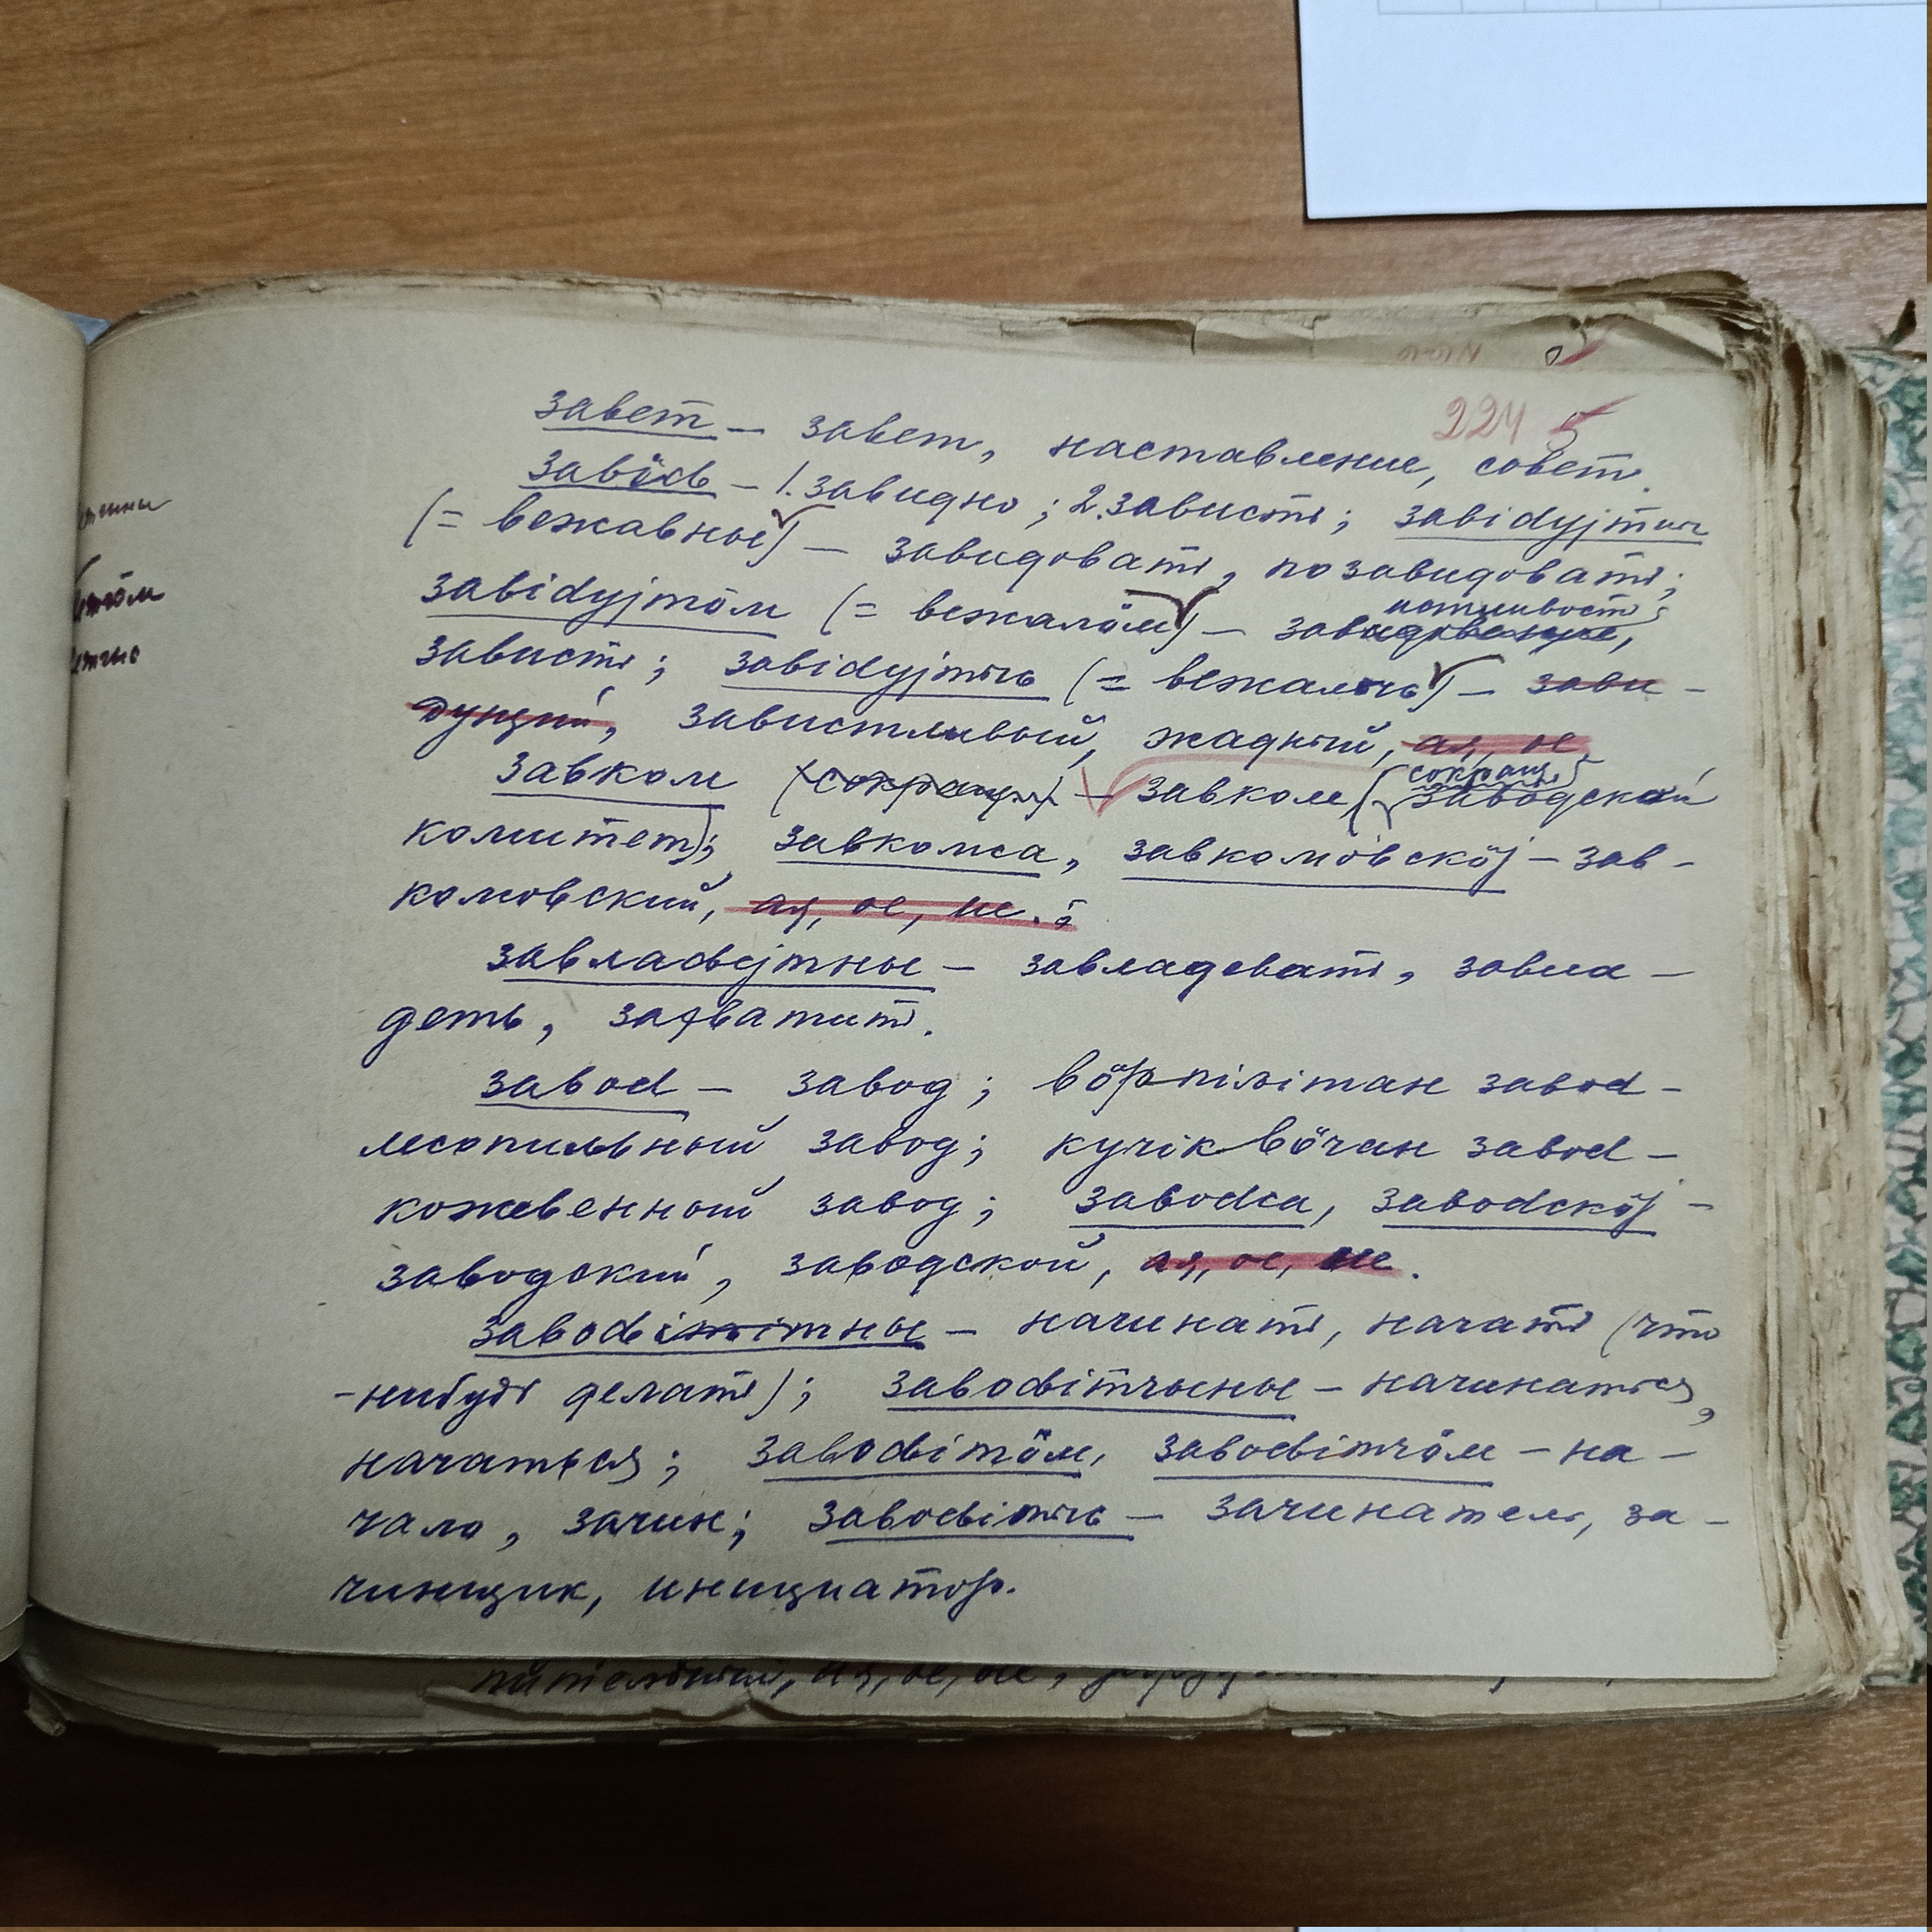 224 5
завет – завет, наставление, совет.
– 1. завидно; 2. зависть; завіdујтны
(= вежавны) – завидовать, позавидовать;
завіdујтӧм (= вежалӧм) –
зависть; завіdујтыԍ (= вежалыԍ) – зави-
дущий, завистливый, жадный, ая, ое
завком (сокращ.) – завком (сокращ. заводской
комитет); завкомса, завкомовскӧј – зав-
комовский, ая, ое, ие.
завлаԁејтны – завладевать, завла-
деть, захватить.
завоd – завод; вӧрпілітан завоd –
лесопильный завод; кучік вӧчан завоd –
кожевенный завод; завоdса, завоdскӧј –
заводский, заводской, ая, ое, ие.
– начинать, начать (что
-нибудь делать); завоԁітчыны – начинаться,
начаться; завоԁітӧм, завоԁітчӧм – на-
чало, зачин; завоԁітыԍ – зачинатель, за-
чинщик, инициатор.